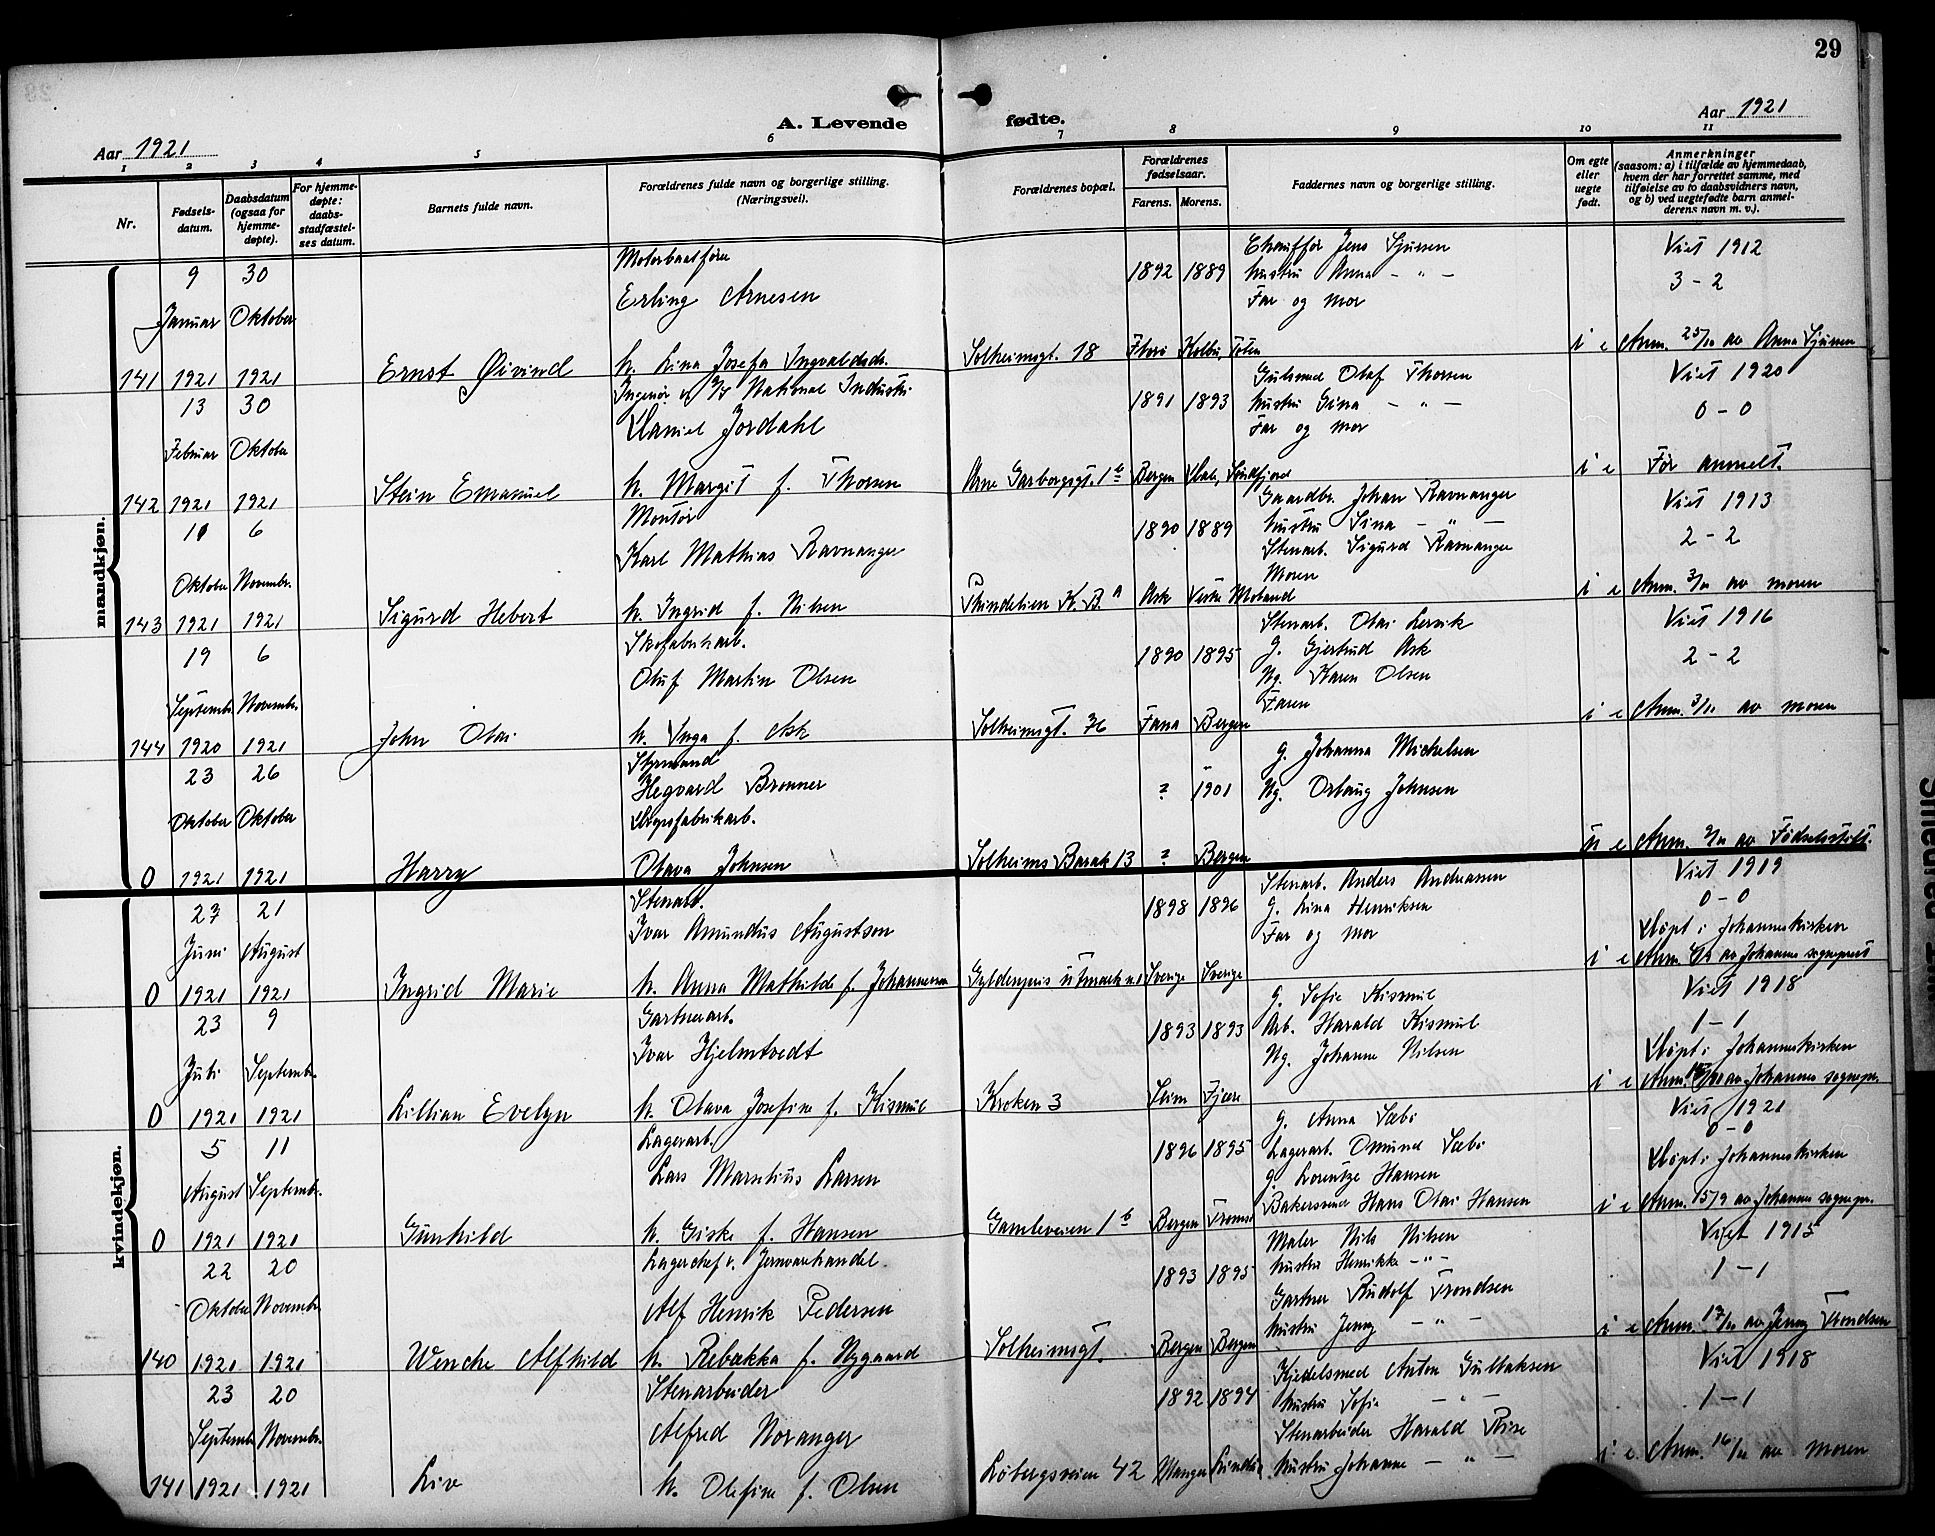 29
A. Levende fødte.
Aar 1921
Aar 1921
1 2 3 4 5 6 7 8 9 10 11
Nr.
Fødsels-
datum.
Daabsdatum
(ogsaa for
hjemme-
døpte).
For hjemme-
døpte:
daabs-
stadfæstel-
ses datum.
Barnets fulde navn.
Forældrenes fulde navn og borgerlige stilling.
(Næringsvei).
Forældrenes bopæl.
Forældrenes
fødselsaar.
Farens. Morens.
Faddernes navn og borgerlige stilling.
Om egte
eller
uegte
født.
Anmerkninger
(saasom: a) i tilfælde av hjemmedaab,
hvem der har forrettet samme, med
tilføielse av to daabsvidners navn,
og b) ved uegtefødte barn anmel-
derens navn m. v.).
mandkjøn.
Motorbaatfører Chauffør Jens Sjursen Viet 1912
9 30 1892 1889 hustru Anna - " -
Erling Arnesen Far og mor 3-2
Januar Oktober
141 1921 1921 Ernst Øivind h. Lina Josefa Ingvaldsdr. Solheimsgt. 18 Florø Kolbu, Toten i e Anm. 25/10 av Anna Sjursen
Ingeniør v. A/S National Industri Gulsmed Olaf Thorsen Viet 1920
13 30 1891 1893 hustru Gina - " - 0-0
Daniel Jordahl Far og mor
Februar Oktober
142 1921 1921 Stein Emanuel h. Margit f. Thorsen Arne Garborgsgt. 1 b Bergen Dale, Søndfjord i e Før anmelt.
Montør Gaardbr. Johan Ravnanger Viet 1913
10 6 1890 1889 hustru Sina - " -
Karl Mathias Ravnanger Stenarb. Sigurd Ravnanger 2-2
Oktober Novembr. Moren
143 1921 1921 Sigurd Hebert h. Ingrid f. Nilsen K. B. Ask Vestre Moland i e Anm. 3/11 av moren
Skofabrikarb. Stenarb. Olai Lervik Viet 1916
19 6 1890 1895 G. Gjertrud Ask
Oluf Martin Olsen Ug. Karen Olsen 2-2
Septembr. Novembr. Faren
144 1920 1921 John Olai h. Inga f. Ask Solheimsgt. 36 Fana Bergen i e Anm. 3/11 av moren
Styrmand G. Johanna Michelsen
23 26 Hegvard Bronner ? 1901 Ug. Osbaug Johnsen
Oktober Oktober
0 1921 1921 Harry Olava Johnsen Solheims Barak 13 ? Bergen u e Anm. av Fødselsstift.
kvindekjøn.
Stenarb. Stenarb. Anders Andreassen Viet 1919
27 21 1898 1896 G. Lina Henriksen 0-0
Ivar Amundus Augustson Far og mor Døpt i Johanneskirken
Juni August
0 1921 1921 Ingrid Marie h. Anna Mathilde f. Johannessen Gyldenpris utmark Sverige Sverige i e Anm. av Johannes sogneprest
Gartnerarb. G. Sofie Kismul Viet 1918
23 9 1893 1893 Arb. Harald Kismul 1-1
Ivar Hjelmtvedt Ug. Johanne Nilsen Døpt i Johanneskirken
Juli Septembr.
0 1921 1921 Lillian Evelyn h. Olava Josefine f. Kismul Kroken 3 Seim Fjære i e Anm. av Johannes sognepr.
Lagerarb. G. Anna Sæbø Viet 1921
5 11 1896 1895 Lagerarb. Osmund Sæbø 0-0
Lars Marselius Larsen G. Lorentze Hansen Døpt i Johanneskirken
August Septembr. Bakersvend Hans Olai Hansen
0 1921 1921 Gunhild h. Giske f. Hansen Gamleveien 1 b Bergen Tromsø i e Anm. 15/9 av Johannes sognepr.
Lagerchef v. Jernvarehandel. Maler Nils Nilsen Viet 1915
22 20 1893 1895 hustru Henrikke - " - 1-1
Oktober Novembr. Alf Henrik Pedersen Gartner Rudolf Trondsen
140 1921 1921 Wenche Alfhild h. Rebekka f. Nygaard Solheimsgt. Bergen Bergen hustru Jenny - " - i e Anm. 17/11 av Jenny Trondsen
Stenarbeider Kjedelsmed Anton Gulbaksen Viet 1918
23 20 1892 1894 hustru Sofie - " - 1-1
Septembr. Novembr. Alfred Noranger Stenarbeider Harald Riise
141 1921 1921 Liv h. Olefine f. Olsen Løbergsveien 42 Manger Lindås hustru Johanne - " - i e Anm. 16/11 av moren